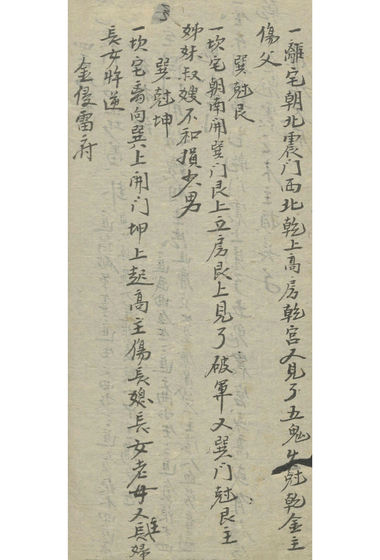 一離宅朝北震门西北乾上高房乾宮又見了五鬼火尅乾金主
傷父
巽尅艮
一坎宅朝南開巽门艮上立房艮上見了破軍又巽门尅艮主
姊妹叔嫂不和損少男
巽尅坤
一坎宅离向巽上開门坤上起高主傷長媳長女老母又主長婦
長女忤逆
金侵雷府